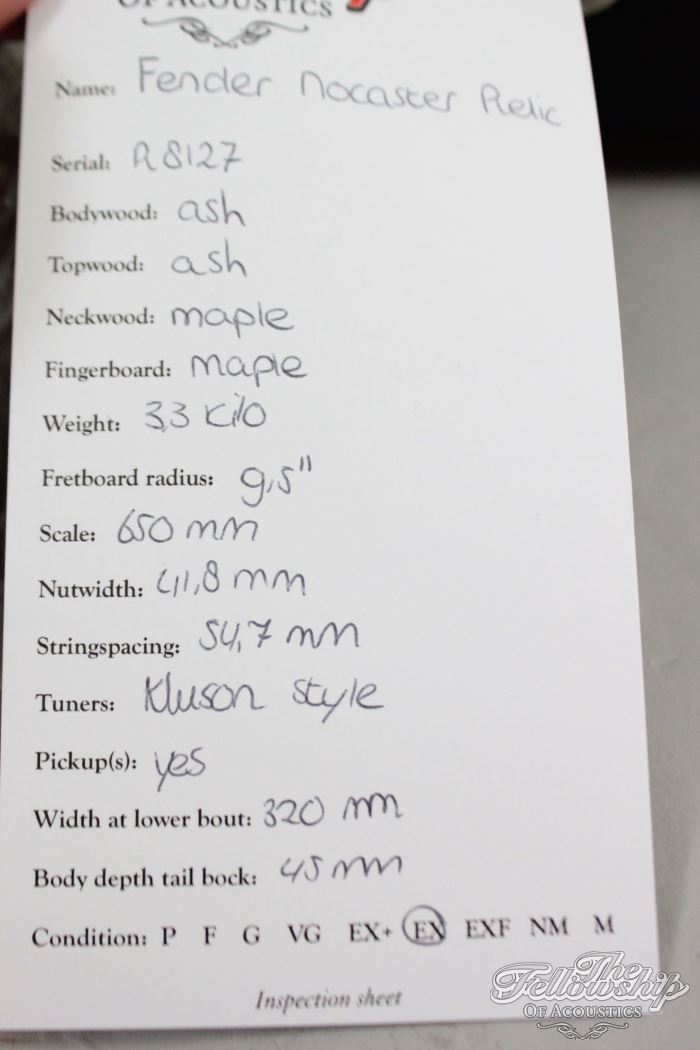 OF ACOUSTICS
Name: Fender Nocaster Relic
Serial: R8127
Bodywood: ash
Topwood: ash
Neckwood: maple
Fingerboard: maple
Weight: 3,3 Kilo
Fretboard radius: 9,5"
Scale: 650 mm
Nutwidth: 41,8 mm
Stringspacing: 54,7 mm
Tuners: Kluson style
Pickup(s): yes
Width at lower bout: 320 mm
Body depth tail bock: 45 mm
Condition: P F G VG EX+ EX EXF NM M
Inspection sheet
The
Fellowship
OF ACOUSTICS